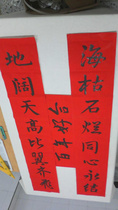 海枯石烂同心永结
地阔天高比翼齐飞